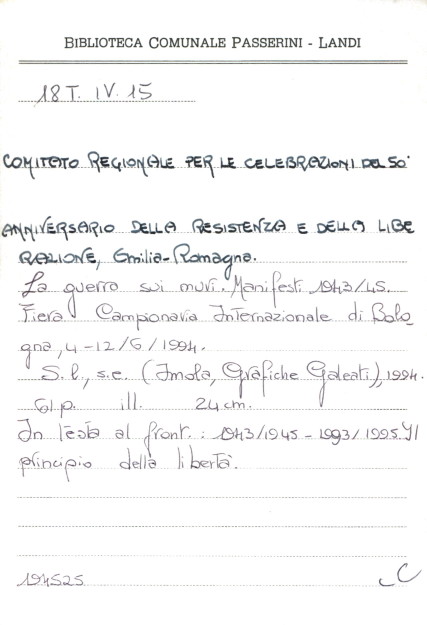 BIBLIOTECA COMUNALE PASSERINI - LANDI
18 T. IV. 15
COMITATO REGIONALE PER LE CELEBRAZIONI DEL 50°
ANNIVERSARIO DELLA RESISTENZA E DELLA LIBE
RAZIONE, Emilia-Romagna.
La guerra sui muri. Manifesti 1943/45.
Fiera Campionaria Internazionale di Bolo-
gna, 4-12/6/1994.
S.l., s.e. (Imola, Grafiche Galeati), 1994.
61 p. ill. 24 cm.
In testa al front.: 1943/1945 - 1993/1995. Il
principio della libertà.
194525
C